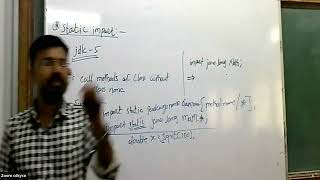 Static import :-
jdk-5
import java.lang.Math;
: call methods of class without
name
import static packagename.classname[methodname/*];
import static java.lang.Math.*;
double x = sqrt(100);
Zoom